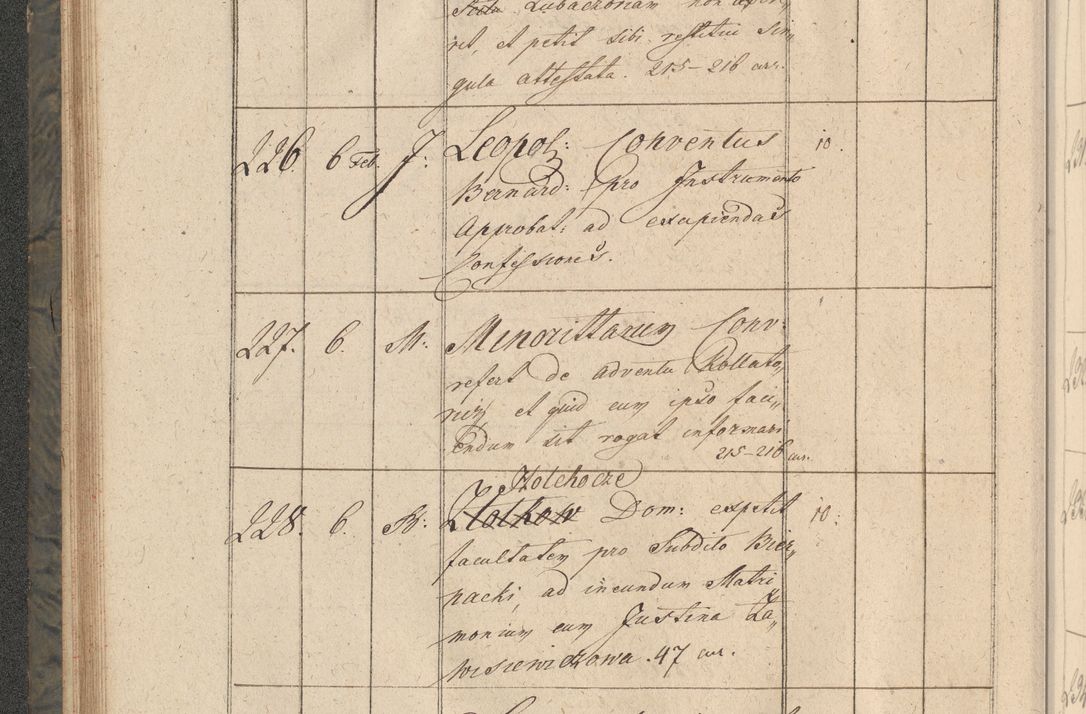 rit, et petit sibi restitui sin„
gula attestata. 215–216 cur.
226. 6 Feb. J: Leopol: Conventus 10.
Bernard: pro Instrumento
Approbat: ad excipiendas
Confessiones.
227. 6. M: Minorittarum Conv:
refert de adventu
et quid cum ipso faci„
endum sit rogat informari
215–216 cur.
228. 6. Dom: expetit 10:
facultatem pro Subdito Bier„
nacki, ad ineundum Matri
monium cum Justina Za„
wisiewiczowa. 47 cur.